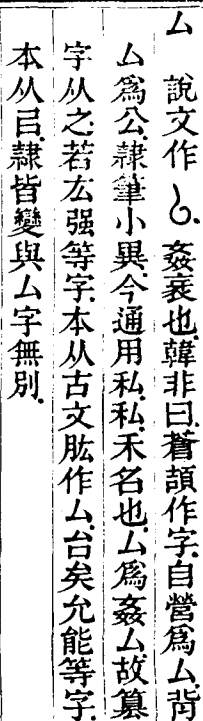 厶 說文作.姦衺也.韓非曰.蒼頡作字.自營爲厶.背
厶爲公.隷筆小異.今通用私.私.禾名也.厶爲姦厶.故篡
字从之.若厷强等字.本从古文肱作厶.台矣允能等字.
本从㠯.隷皆變與厶字無別.